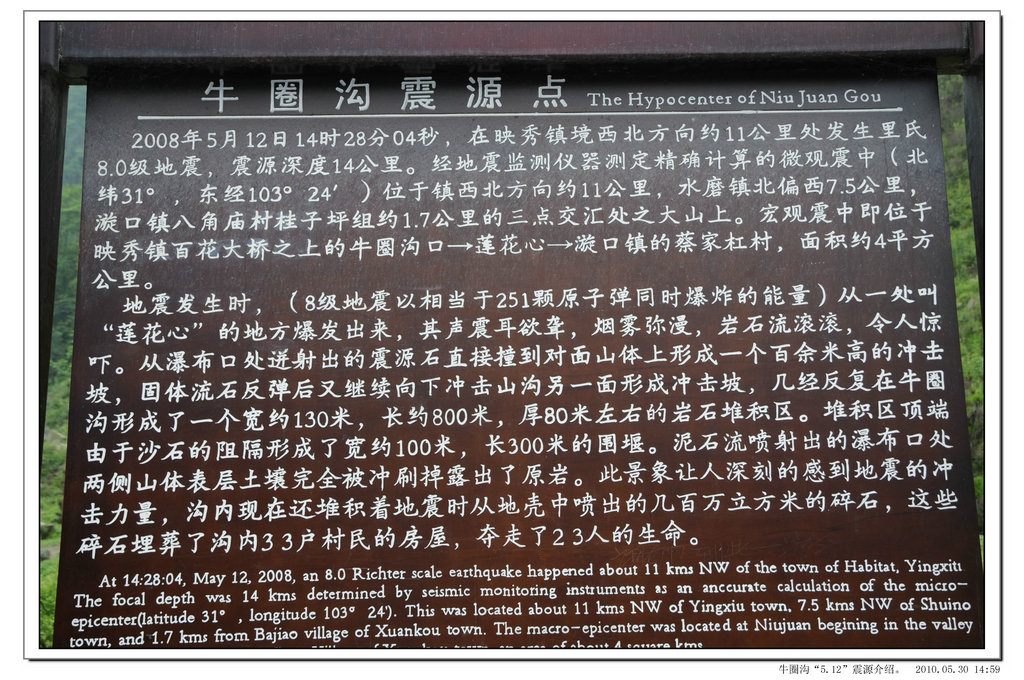 牛圈沟震源点 The Hypocenter of Niu Juan Gou
2008年5月12日14时28分04秒，在映秀镇境西北方向约11公里处发生里氏
8.0级地震，震源深度14公里。经地震监测仪器测定精确计算的微观震中（北
纬31°，东经103°24′）位于镇西北方向约11公里，水磨镇北偏西7.5公里，
漩口镇八角庙村桂子坪组约1.7公里的三点交汇处之大山上。宏观震中即位于
映秀镇百花大桥之上的牛圈沟口→莲花心→漩口镇的蔡家杠村，面积约4平方
公里。
地震发生时，（8级地震以相当于251颗原子弹同时爆炸的能量）从一处叫
“莲花心”的地方爆发出来，其声震耳欲聋，烟雾弥漫，岩石流滚滚，令人惊
吓。从瀑布口处迸射出的震源石直接撞到对面山体上形成一个百余米高的冲击
坡，固体流石反弹后又继续向下冲击山沟另一面形成冲击坡，几经反复在牛圈
沟形成了一个宽约130米，长约800米，厚80米左右的岩石堆积区。堆积区顶端
由于沙石的阻隔形成了宽约100米，长300米的围堰。泥石流喷射出的瀑布口处
两侧山体表层土壤完全被冲刷掉露出了原岩。此景象让人深刻的感到地震的冲
击力量，沟内现在还堆积着地震时从地壳中喷出的几百万立方米的碎石，这些
碎石埋葬了沟内33户村民的房屋，夺走了23人的生命。
At 14:28:04, May 12, 2008, an 8.0 Richter scale earthquake happened about 11 kms NW of the town of Habitat, Yingxiu
The focal depth was 14 kms determined by seismic monitoring instruments as an anccurate calculation of the micro-
epicenter(latitude 31°, longitude 103° 24'). This was located about 11 kms NW of Yingxiu town, 7.5 kms NW of Shuino
town, and 1.7 kms from Bajiao village of Xuankou town. The macro-epicenter was located at Niujuan begining in the valley
town, an area of about 4 square kms
牛圈沟“5.12”震源介绍。 2010.05.30 14:59